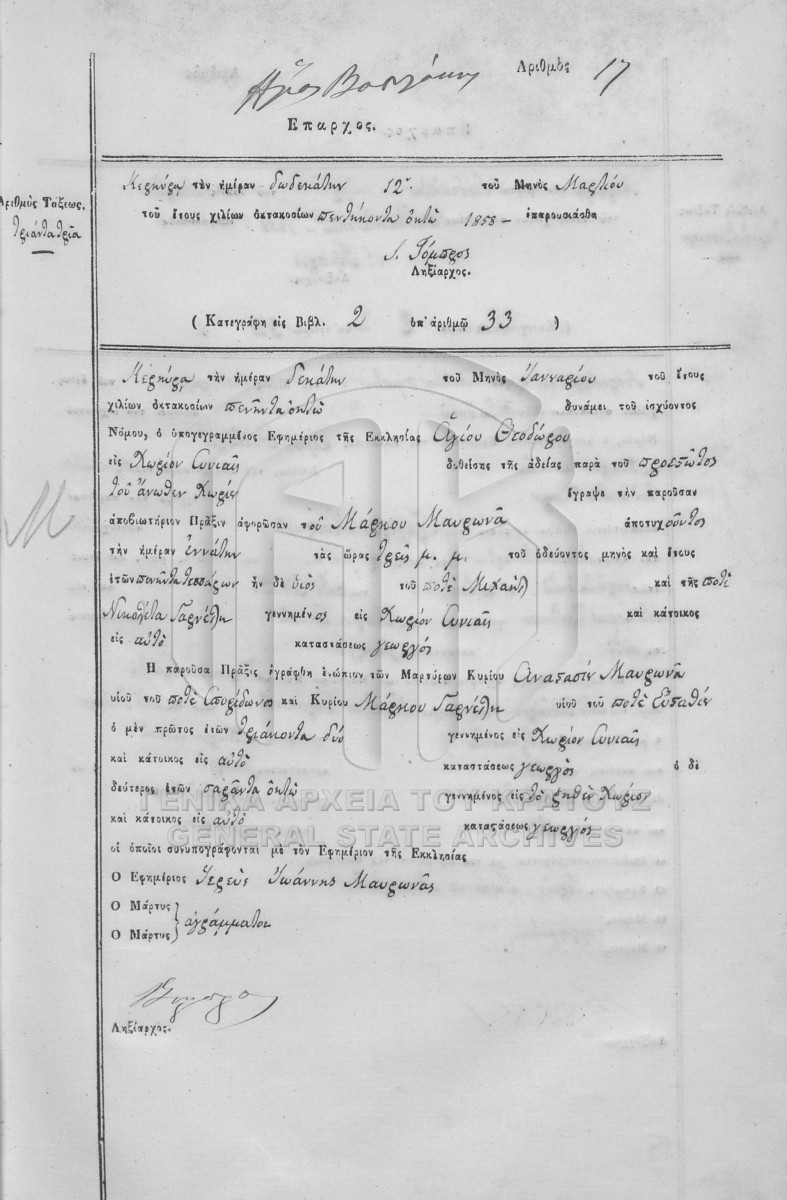 Ἀριθμὸς 17
Ἔπαρχος.
Ἀριθμὸς Τάξεως.
τριάντα τρία
Κερκύρα τὴν ἡμέραν δωδεκάτην 12. τοῦ Μηνὸς Μαρτίου
τοῦ ἔτους χιλίων ὀκτακοσίων πεντήκοντα ὀκτὼ 1858 – ἐπαρουσιάσθη
Ληξίαρχος.
( Κατεγράφη εἰς Βιβλ. 2 ὑπ' ἀριθμῷ 33 )
Κερκύρα τὴν ἡμέραν δεκάτην τοῦ Μηνὸς Ἰανναρίου τοῦ ἔτους
χιλίων ὀκτακοσίων πενῆντα ὀκτὼ δυνάμει τοῦ ἰσχύοντος
Νόμου, ὁ ὑπογεγραμμένος Ἐφημέριος τῆς Ἐκκλησίας Ἁγίου Θεοδώρου
εἰς Χωρίον Συνιαῖς δοθείσης τῆς ἀδείας παρὰ τοῦ προεστῶτος
τοῦ ἄνωθεν Χωρίου ἔγραψε τὴν παροῦσαν
ἀποβιωτήριον Πρᾶξιν ἀφορῶσαν τοῦ Μάρκου Μαυρωνᾶ ἀποτυχοῦντος
τὴν ἡμέραν ἐννάτην τὰς ὥρας τρεῖς μ. μ. τοῦ ὁδεύοντος μηνὸς καὶ ἔτους
ἐτῶν πενῆντα τεσσάρων ἦν δὲ υἱὸς τοῦ ποτὲ Μιχαὴλ καὶ τῆς ποτὲ
Νικολέτα Γαρνέλη γεννημένος εἰς Χωρίον Συνιαῖς καὶ κάτοικος
εἰς αὐτὸ καταστάσεως γεωργός
Ἡ παροῦσα Πρᾶξις ἐγράφθη ἐνώπιον τῶν Μαρτύρων Κυρίου Αναστασίου Μαυρωνᾶ
υἱοῦ τοῦ ποτὲ Σπυρίδωνος καὶ Κυρίου Μάρκου Γαρνέλη υἱοῦ τοῦ ποτὲ Εὐσταθίου
ὁ μὲν πρῶτος ἐτῶν τριάκοντα δύο γεννημένος εἰς Χωρίον Συνιαῖς
καὶ κάτοικος εἰς αὐτὸ καταστάσεως γεωργὸς ὁ δὲ
δεύτερος ἐτῶν σαράντα ὀκτὼ γεννημένος εἰς τὸ ῥηθὲν Χωρίον
καὶ κάτοικος εἰς αὐτὸ καταστάσεως γεωργός
οἱ ὁποῖοι συνυπογράφονται μὲ τὸν Ἐφημέριον τῆς Ἐκκλησίας
Ὁ Ἐφημέριος Ἱερεὺς Ἰωάννης Μαυρωνᾶς
Ὁ Μάρτυς
Ὁ Μάρτυς
ἀγράμματοι
Ληξίαρχος.
ΓΕΝΙΚΑ ΑΡΧΕΙΑ ΤΟΥ ΚΡΑΤΟΥΣ
GENERAL STATE ARCHIVES